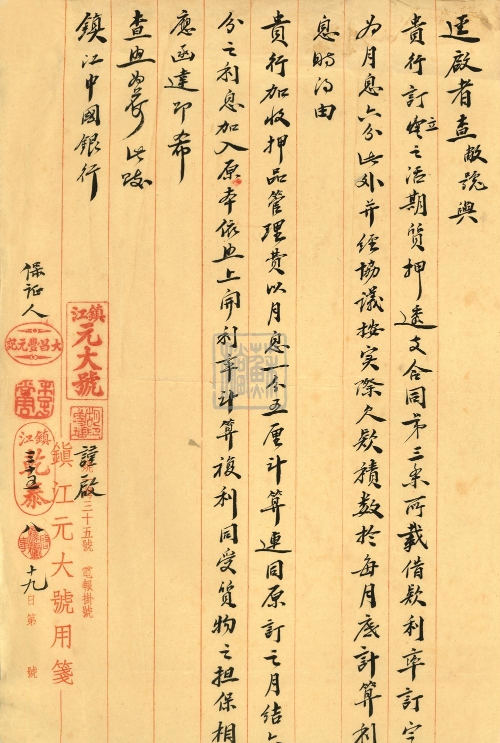 逕啟者查敝號與
貴行訂立之活期質押透支合同第三条所載借款利率訂定
为月息六分此外并经協議按实際欠款積数於每月底計算利
息時得由
貴行加收押品管理費以月息一分五厘计算連同原訂之月結六
分之利息加入原本依照上開利率计算複利同受質物之担保相
應函達即希
查照为荷此致
鎮江中國銀行
謹啟
鎮江
元大號
保证人
大昌豐元記
鎮江
乾泰
三十五號 電報掛號
鎮江元大號用箋
三五 八 十九日第 號